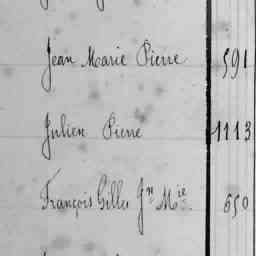 Jean Marie Pierre 591
Julien Pierre 1113
François Gilles Jn Mie 650